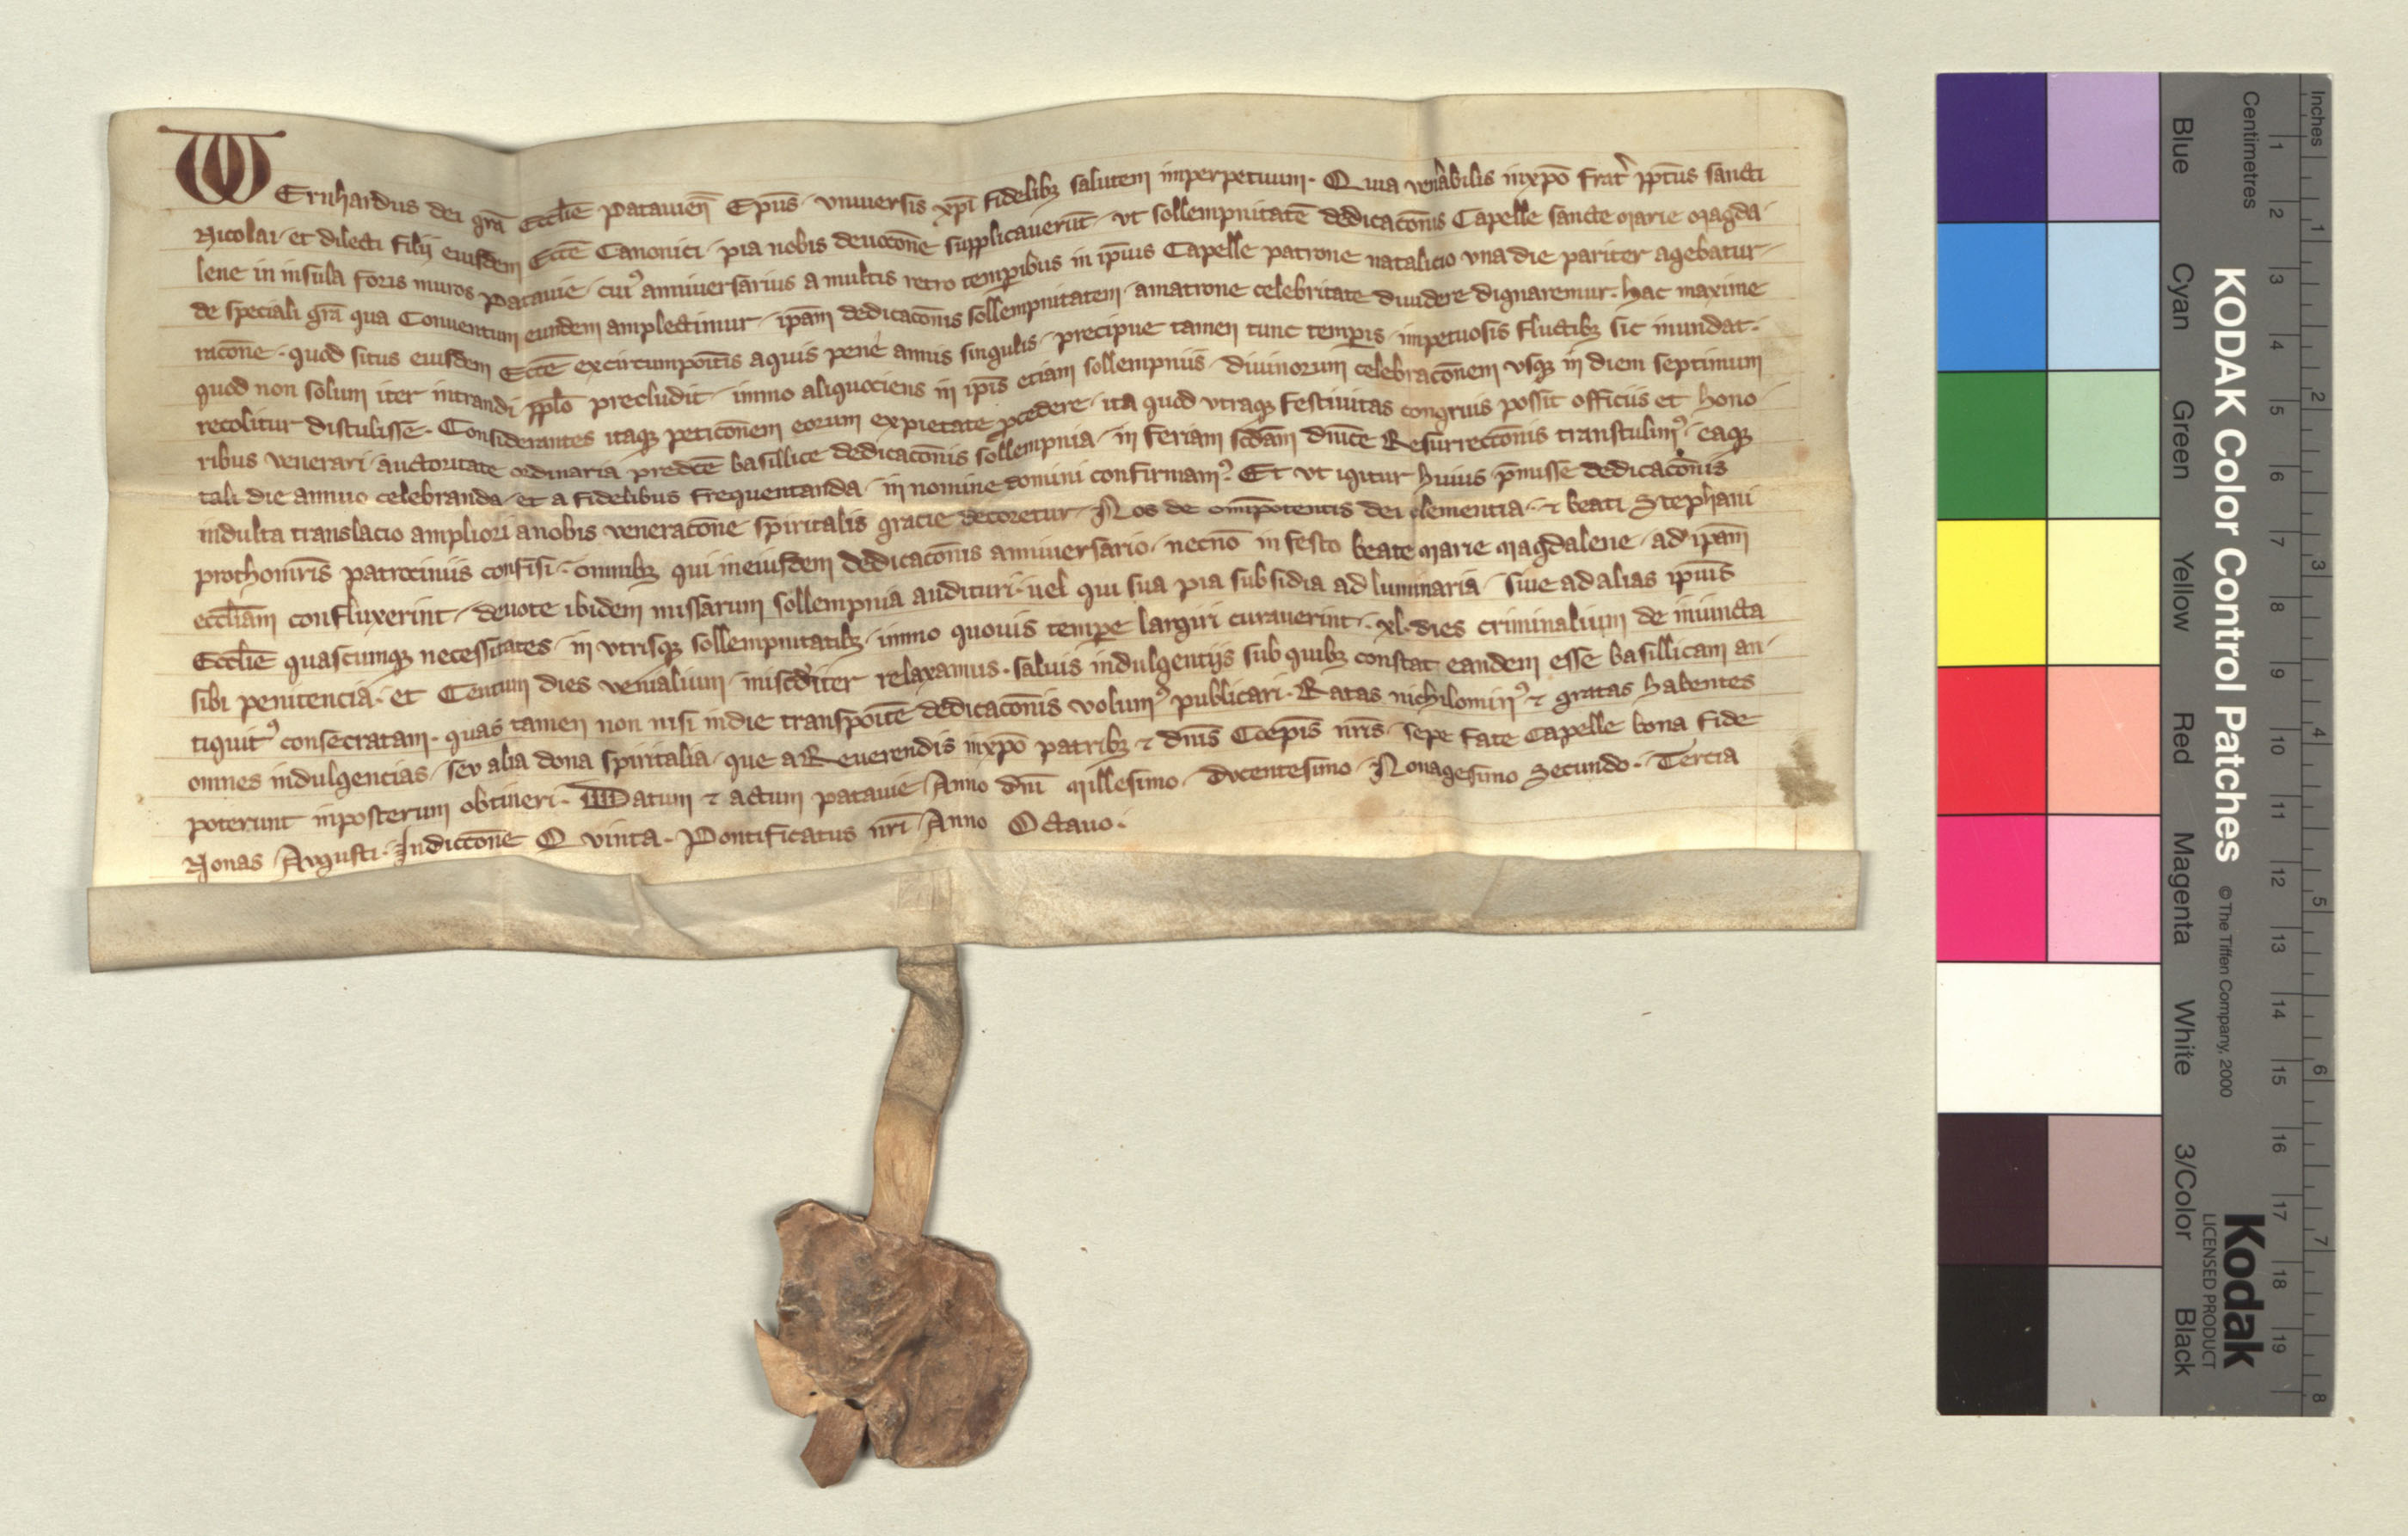 WErnhardus dei gr̄a Eccl̄ie Patauien̄ Ep̄us · vniuersis xp̄i fidelibꝫ salutem inperpetuum · Quia ven̄abilis inxp̄o frat̄ p̄p̄tus sancti
Nicolai · et dilecti filij eiusdem Ecc̄e Canonici · pia nobis deuoc̄one supplicauerūt · vt sollempnitatē dedicac̄onis Capelle sancte Marie Magda
lene in insula foris muros Patauie · cuiꝰ anniuersarius a multis retro temꝑibus in ip̄ius Capelle patrone natalicio vna die pariter agebatur
de speciali gr̄a qua Conuentum eundem amplectimur · ip̄am dedicac̄onis sollempnitatem · amatrone celebritate diuidere dignaremur · hac maxime
rac̄one · quod situs eiusdem Ecc̄e excircumpoītis aquis pene annis singulis · precipue tamen tunc temꝑis · impetuosis fluctibꝫ sic inundat ·
quod non solum iter intrandi p̄plō precludit · immo aliquociens in ip̄is etiam sollempniis · diuinorum celebrac̄onem vsqꝫ in diem septimum
recolitur distulisse · Considerantes itaqꝫ petic̄onem eorum expietate ꝓcedere · ita quod vtraqꝫ festiuitas congruis possit officiis et hono
ribus venerari · auctoritate ordinaria predc̄e basillice dedicac̄onis sollempnia · in feriam sc̄dam dn̄ice Resurrecc̄onis transtulimꝰ · eaqꝫ
tali die annuo celebranda · et a fidelibus frequentanda · in nomine domini confirmamꝰ · Et vt igitur huius p̄misse dedicac̄onis
indulta translacio ampliori anobis venerac̄one spiritalis gracie decoretur · Nos de om̄ipotentis dei clementia · ⁊ beati Stephani
prothom̄ris patrociniis confisi · omnibꝫ qui ineiusdem dedicac̄onis anniuersario · necnō in festo beate Marie Magdalene · ad ip̄am
eccl̄iam confluxerint · deuote ibidem missarum sollempnia audituri · uel qui sua pia subsidia ad luminaria · siue ad alias ip̄ius
Eccl̄ie quascumqꝫ necessitates · in vtrisqꝫ sollempnitatibꝫ · immo quouis temꝑe largiri curauerint · xl · dies criminalium de iniuncta
sibi penitencia · et Centum dies venialium · misc̄diter relaxamus · saluis indulgentijs sub quibꝫ constat eandem esse basillicam an
tiquitꝰ consecratam · quas tamen non nisi indie transpoīte dedicac̄onis volumꝰ publicari · Ratas nichilominꝰ ⁊ gratas habentes
omnes indulgencias · sev alia dona spiritalia · que aReuerendis inxp̄o patribꝫ ⁊ dn̄is Coep̄is nr̄is · sepe fate Capelle bona fide
poterunt inposterum obtineri · Datum ⁊ actum patauie · Anno dn̄i Millesimo · Dvcentesimo · Nonagesimo Secundo · Tercia
Nonas Avgusti · Indicc̄one Qvinta · Pontificatus nr̄i Anno Octauo ·
KODAK Color Control Patches
© The Tiffen Company, 2000
Kodak
LICENSED PRODUCT
Inches
Centimetres
1 2 3 4 5 6 7 8
1 2 3 4 5 6 7 8 9 10 11 12 13 14 15 16 17 18 19
Blue
Cyan
Green
Yellow
Red
Magenta
White
3/Color
Black